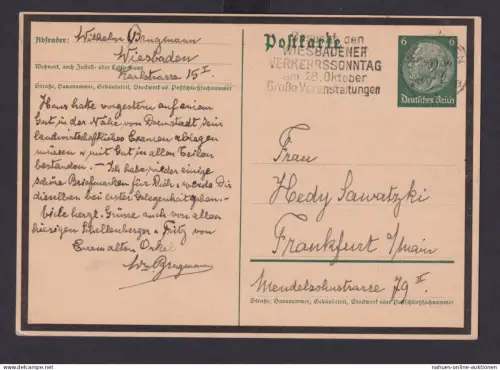 Absender: Wilhelm Brugmann
Wiesbaden
Wohnort, auch Zustell- oder Leitpostamt
Karlstrasse 15 I
Straße, Hausnummer, Gebäudeteil, Stockwerk od. Postschließfachnummer
Hans hatte vorgestern auf einem
Gut in der Nähe von Darmstadt sein
landwirtschaftliches Examen ablegen
müssen u. mit Gut in allen Teilen
bestanden. – Ich habe wieder einige
schöne Briefmarken für Rudi u. werde Dir
dieselben bei erster Gelegenheit geben. –
Viele herzl. Grüsse auch von allen
hiesigen Schellenberger u. Fritz von
Eurem alten Onkel
Wm Brugmann
Postkarte
den
WIESBADENER
VERKEHRSSONNTAG
am 28. Oktober
Große Veranstaltungen
6 6
Deutsches Reich
Frau
Hedy Sawatzki
Frankfurt a/Main
Mendelssohnstrasse 79 II
Straße, Hausnummer, Gebäudeteil, Stockwerk oder Postschließfachnummer
nahues-online-auktionen.com
nahues-online-auktionen.com